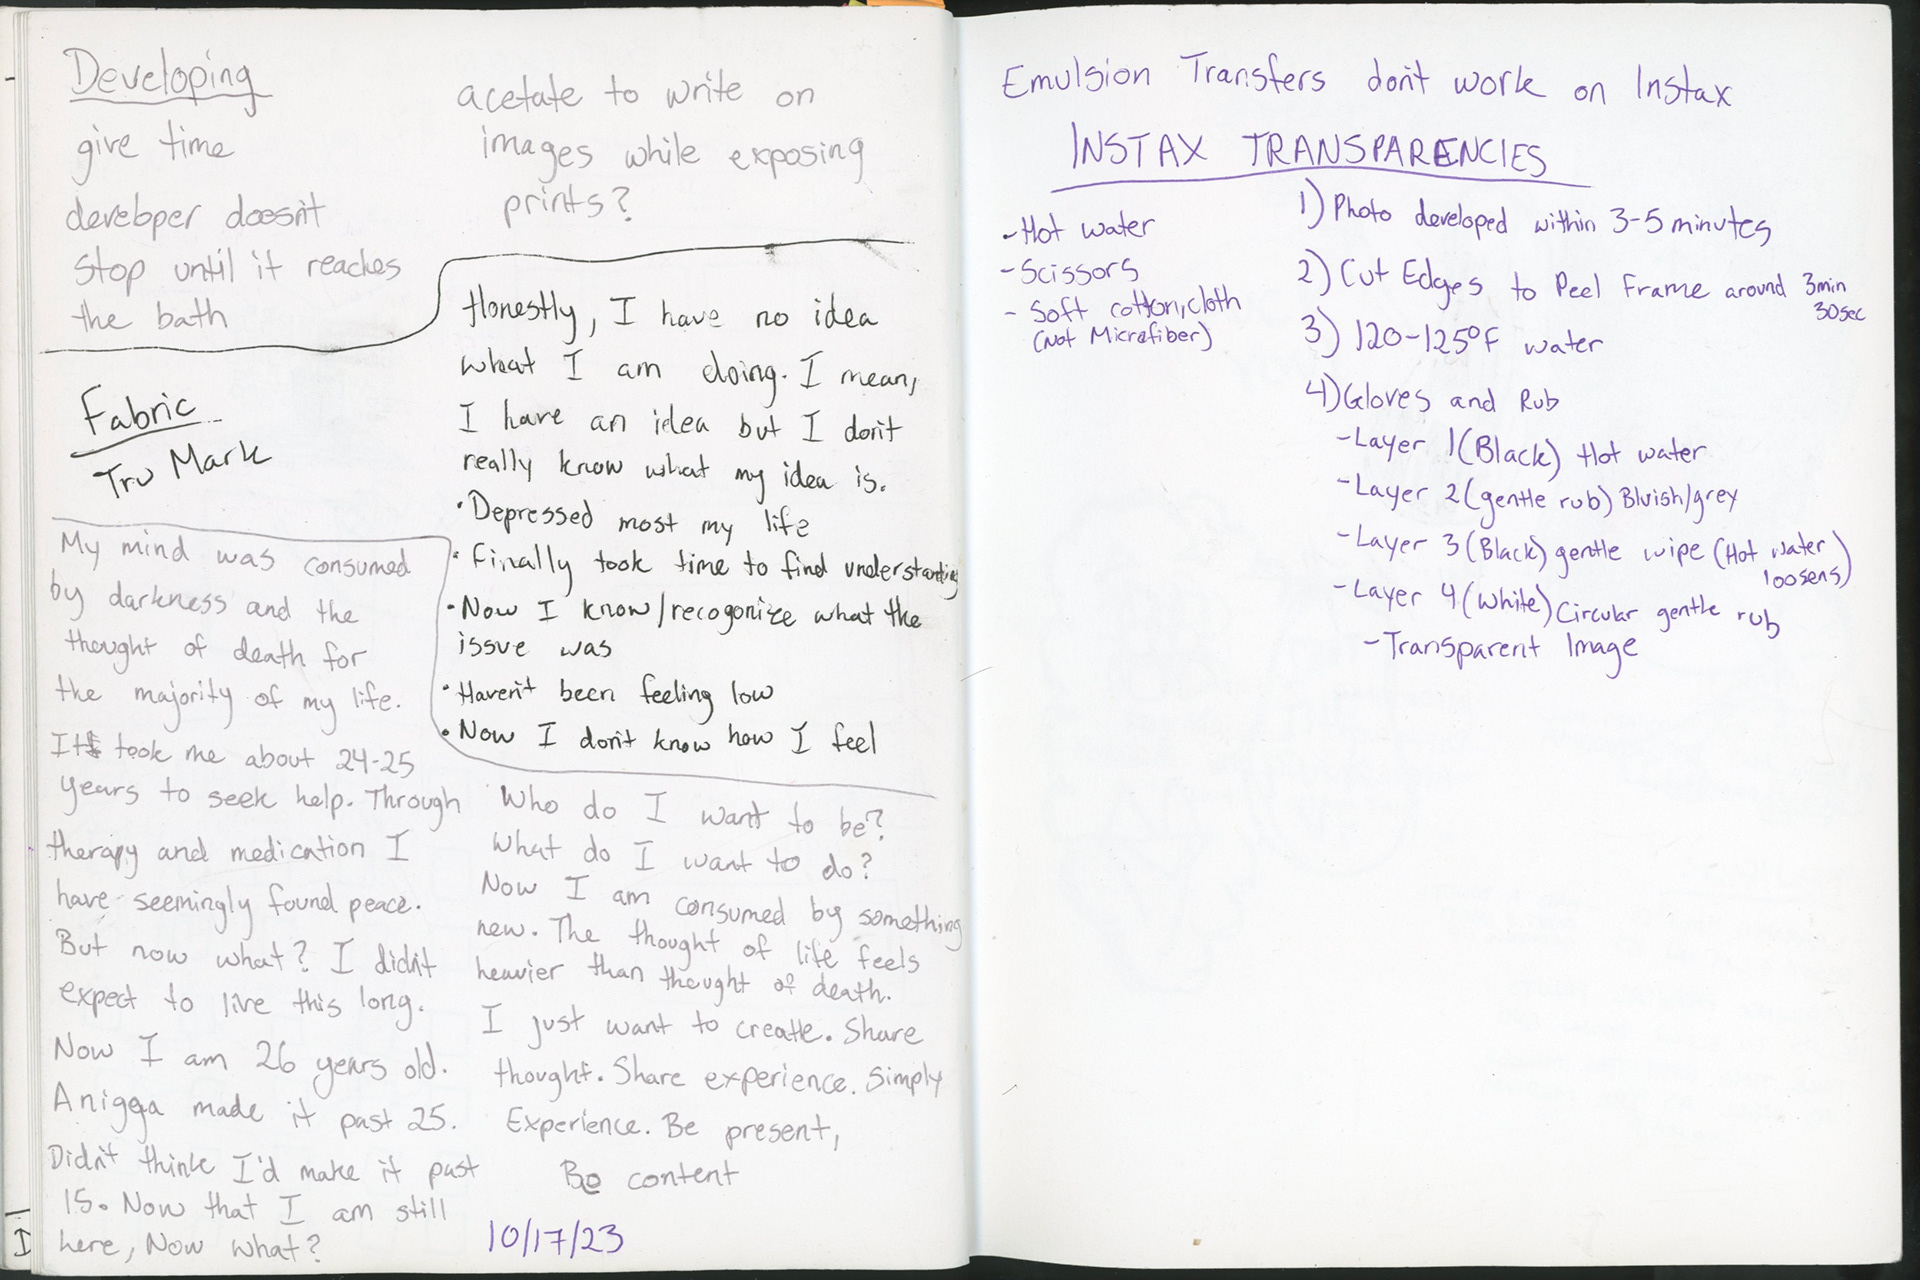 Developing
give time
developer doesn't
stop until it reaches
the bath
acetate to write on
images while exposing
prints?
Fabric
Tru Mark
Honestly, I have no idea
what I am doing. I mean,
I have an idea but I don't
really know what my idea is.
·Depressed most my life
·Finally took time to find understanding
·Now I know/recogonize what the
issue was
·Haven't been feeling low
·Now I don't know how I feel
My mind was consumed
by darkness and the
thought of death for
the majority of my life.
It took me about 24-25
years to seek help. Through
therapy and medication I
have seemingly found peace.
But now what? I didn't
expect to live this long.
Now I am 26 years old.
A nigga made it past 25.
Didn't think I'd make it past
15. Now that I am still
here, Now what?
Who do I want to be?
What do I want to do?
Now I am consumed by something
new. The thought of life feels
heavier than thought of death.
I just want to create. Share
thought. Share experience. Simply
Experience. Be present,
Be content
10/17/23
I
Emulsion Transfers don't work on Instax
INSTAX TRANSPARENCIES
-Hot water
-Scissors
- Soft cotton, cloth
(Not Microfiber)
1) Photo developed within 3-5 minutes
2) Cut Edges to Peel Frame around 3min
30sec
3) 120-125°F water
4) Gloves and Rub
-Layer 1 (Black) Hot water
-Layer 2 (gentle rub) Bluish/grey
-Layer 3 (Black) gentle wipe (Hot water
loosens)
-Layer 4 (White) Circular gentle rub
-Transparent Image